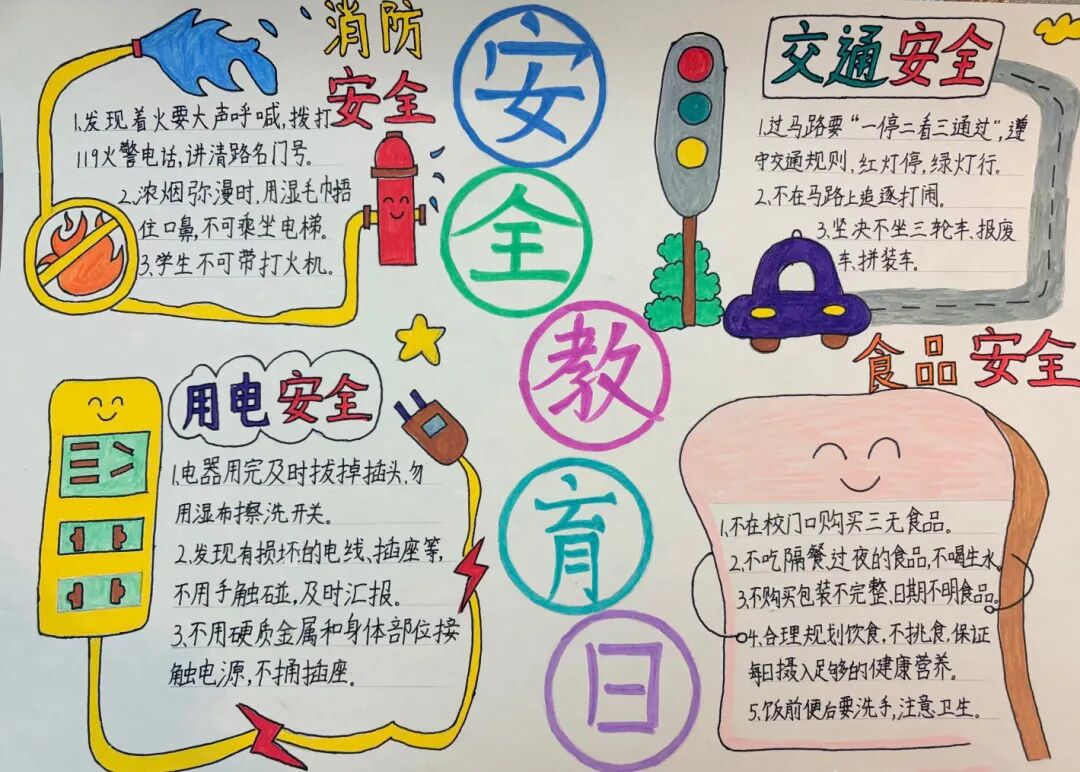 安
全
教
育
日
消防
安全
1.发现着火要大声呼喊,拨打
119火警电话,讲清路名门号。
2.浓烟弥漫时,用湿毛巾捂
住口鼻,不可乘坐电梯。
3.学生不可带打火机。
交通安全
1.过马路要“一停二看三通过”,遵
守交通规则,红灯停,绿灯行。
2.不在马路上追逐打闹。
3.坚决不坐三轮车、报废
车、拼装车。
用电安全
1.电器用完及时拔掉插头,勿
用湿布擦洗开关。
2.发现有损坏的电线、插座等,
不用手触碰,及时汇报。
3.不用硬质金属和身体部位接
触电源,不捅插座。
食品安全
1.不在校门口购买三无食品。
2.不吃隔餐、过夜的食品,不喝生水。
3.不购买包装不完整、日期不明食品。
4.合理规划饮食,不挑食,保证
每日摄入足够的健康营养。
5.饭前便后要洗手,注意卫生。